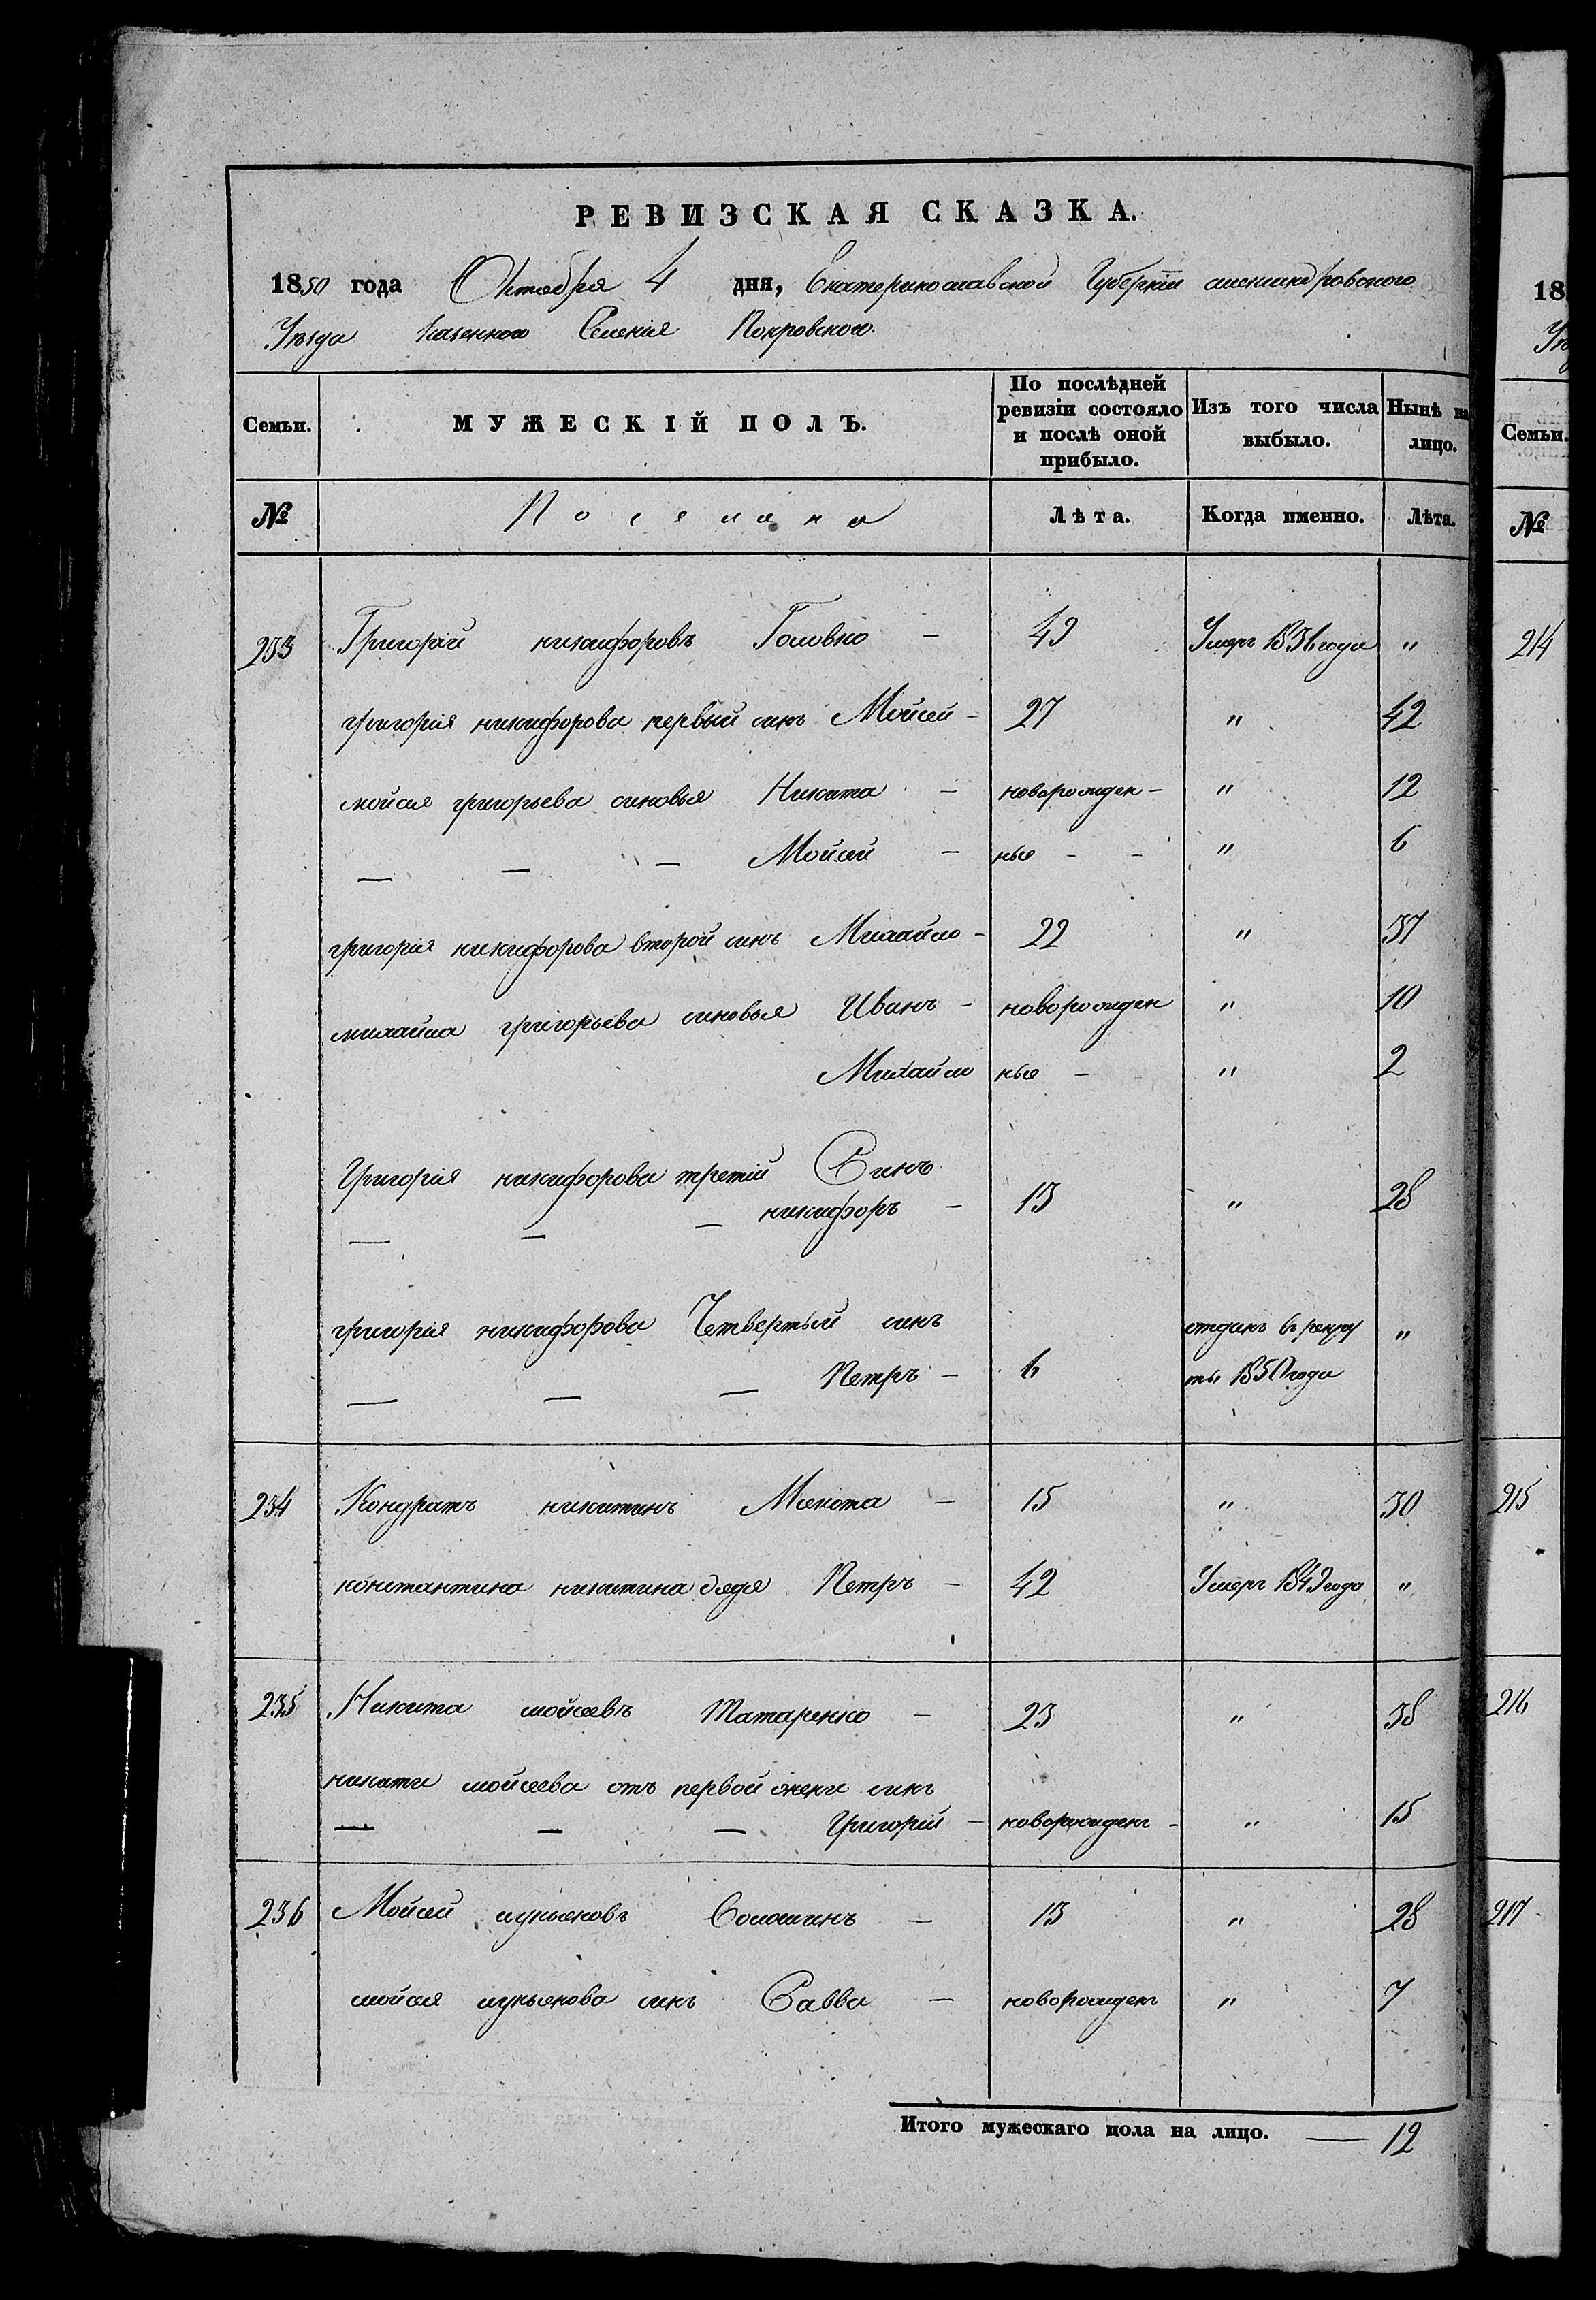 РЕВИЗСКАЯ СКАЗКА.
1850 года Октября 4 дня, Екатеринославской Губерніи александровского
Уезда Казенного Селенія Покровского.
Семьи. МУЖЕСКІЙ ПОЛЪ. По послѣдней ревизіи состояло и послѣ оной прибыло. Изъ того числа выбыло. Нынѣ на лицо.
№ Поселяне Лѣта. Когда именно. Лѣта.
233 Григорій никифоровъ Головко — 49 Умеръ 1836 года "
григорія никифорова первый синъ Мойсей — 27 " 42
мойсея григорьева синовья Никита — новорожден — " 12
— — — Мойсей — ные — — " 6
григорія никифорова второй синъ Михайло — 22 " 37
михайла григорьева синовья Иванъ — новорожден " 10
Михайло ные — " 2
Григорія никифорова третій Синъ
— — — никифоръ — 13 " 28
григорія никифорова Четвертый синъ отданъ в рекру "
— — — Петръ — 6 ты 1850 года
234 Кондратъ никитинъ Мокота — 15 " 30
константина никитина дядя Петръ — 42 Умеръ 1849 года "
235 Никита мойсеевъ Татаренко — 23 " 38
никити мойсеева отъ первой жени синъ
— — — Григорій — новорожденъ — " 15
236 Мойсей лукьяновъ Соломинъ — 13 " 28
мойсея лукьянова синъ Савва — новорожденъ " 7
Итого мужескаго пола на лицо. — 12
18
Уе
Семьи.
№
214
215
216
217